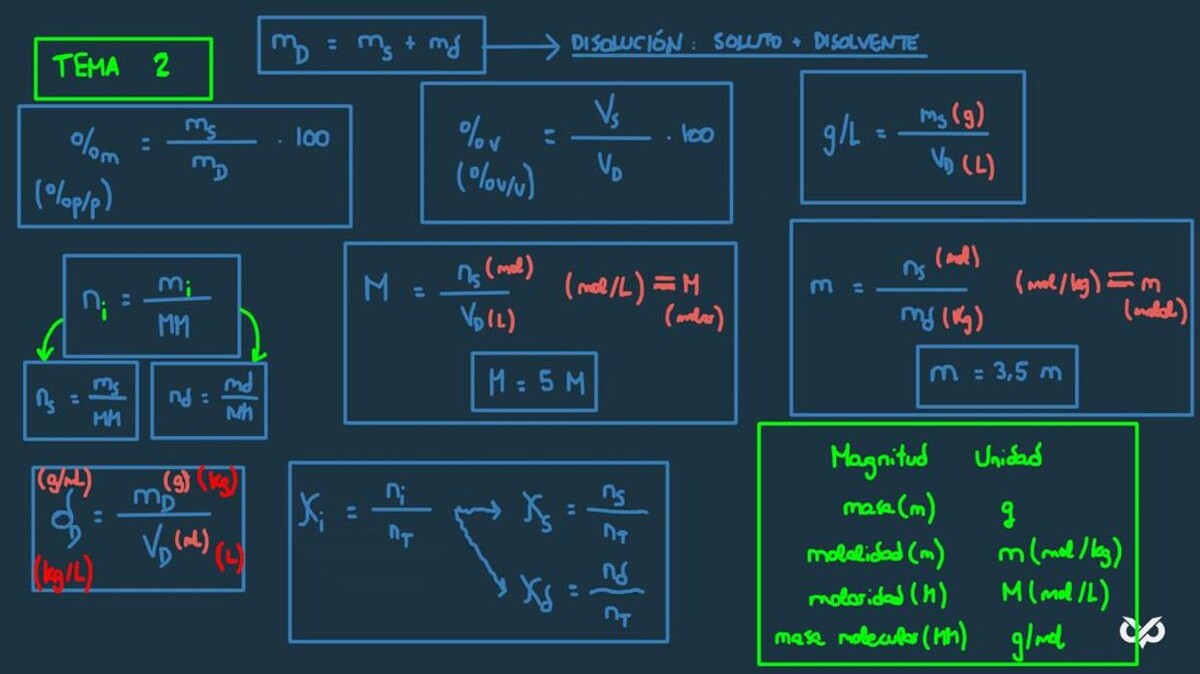 TEMA 2
m_D = m_s + m_d → DISOLUCIÓN: SOLUTO + DISOLVENTE
%m = m_s / m_D · 100
(%p/p)
%v = V_s / V_D · 100
(%v/v)
g/L = m_s (g) / V_D (L)
n_i = m_i / MM
n_s = m_s / MM
n_d = m_d / MM
M = n_s (mol) / V_D (L) (mol/L) = M
(molar)
M = 5 M
m = n_s (mol) / m_d (Kg) (mol/kg) = m
(molal)
m = 3,5 m
(g/mL)
d_D = m_D (g) (kg) / V_D (mL) (L)
(kg/L)
X_i = n_i / n_T
X_s = n_s / n_T
X_d = n_d / n_T
Magnitud Unidad
masa (m) g
molalidad (m) m (mol/kg)
molaridad (M) M (mol/L)
masa molecular (MM) g/mol